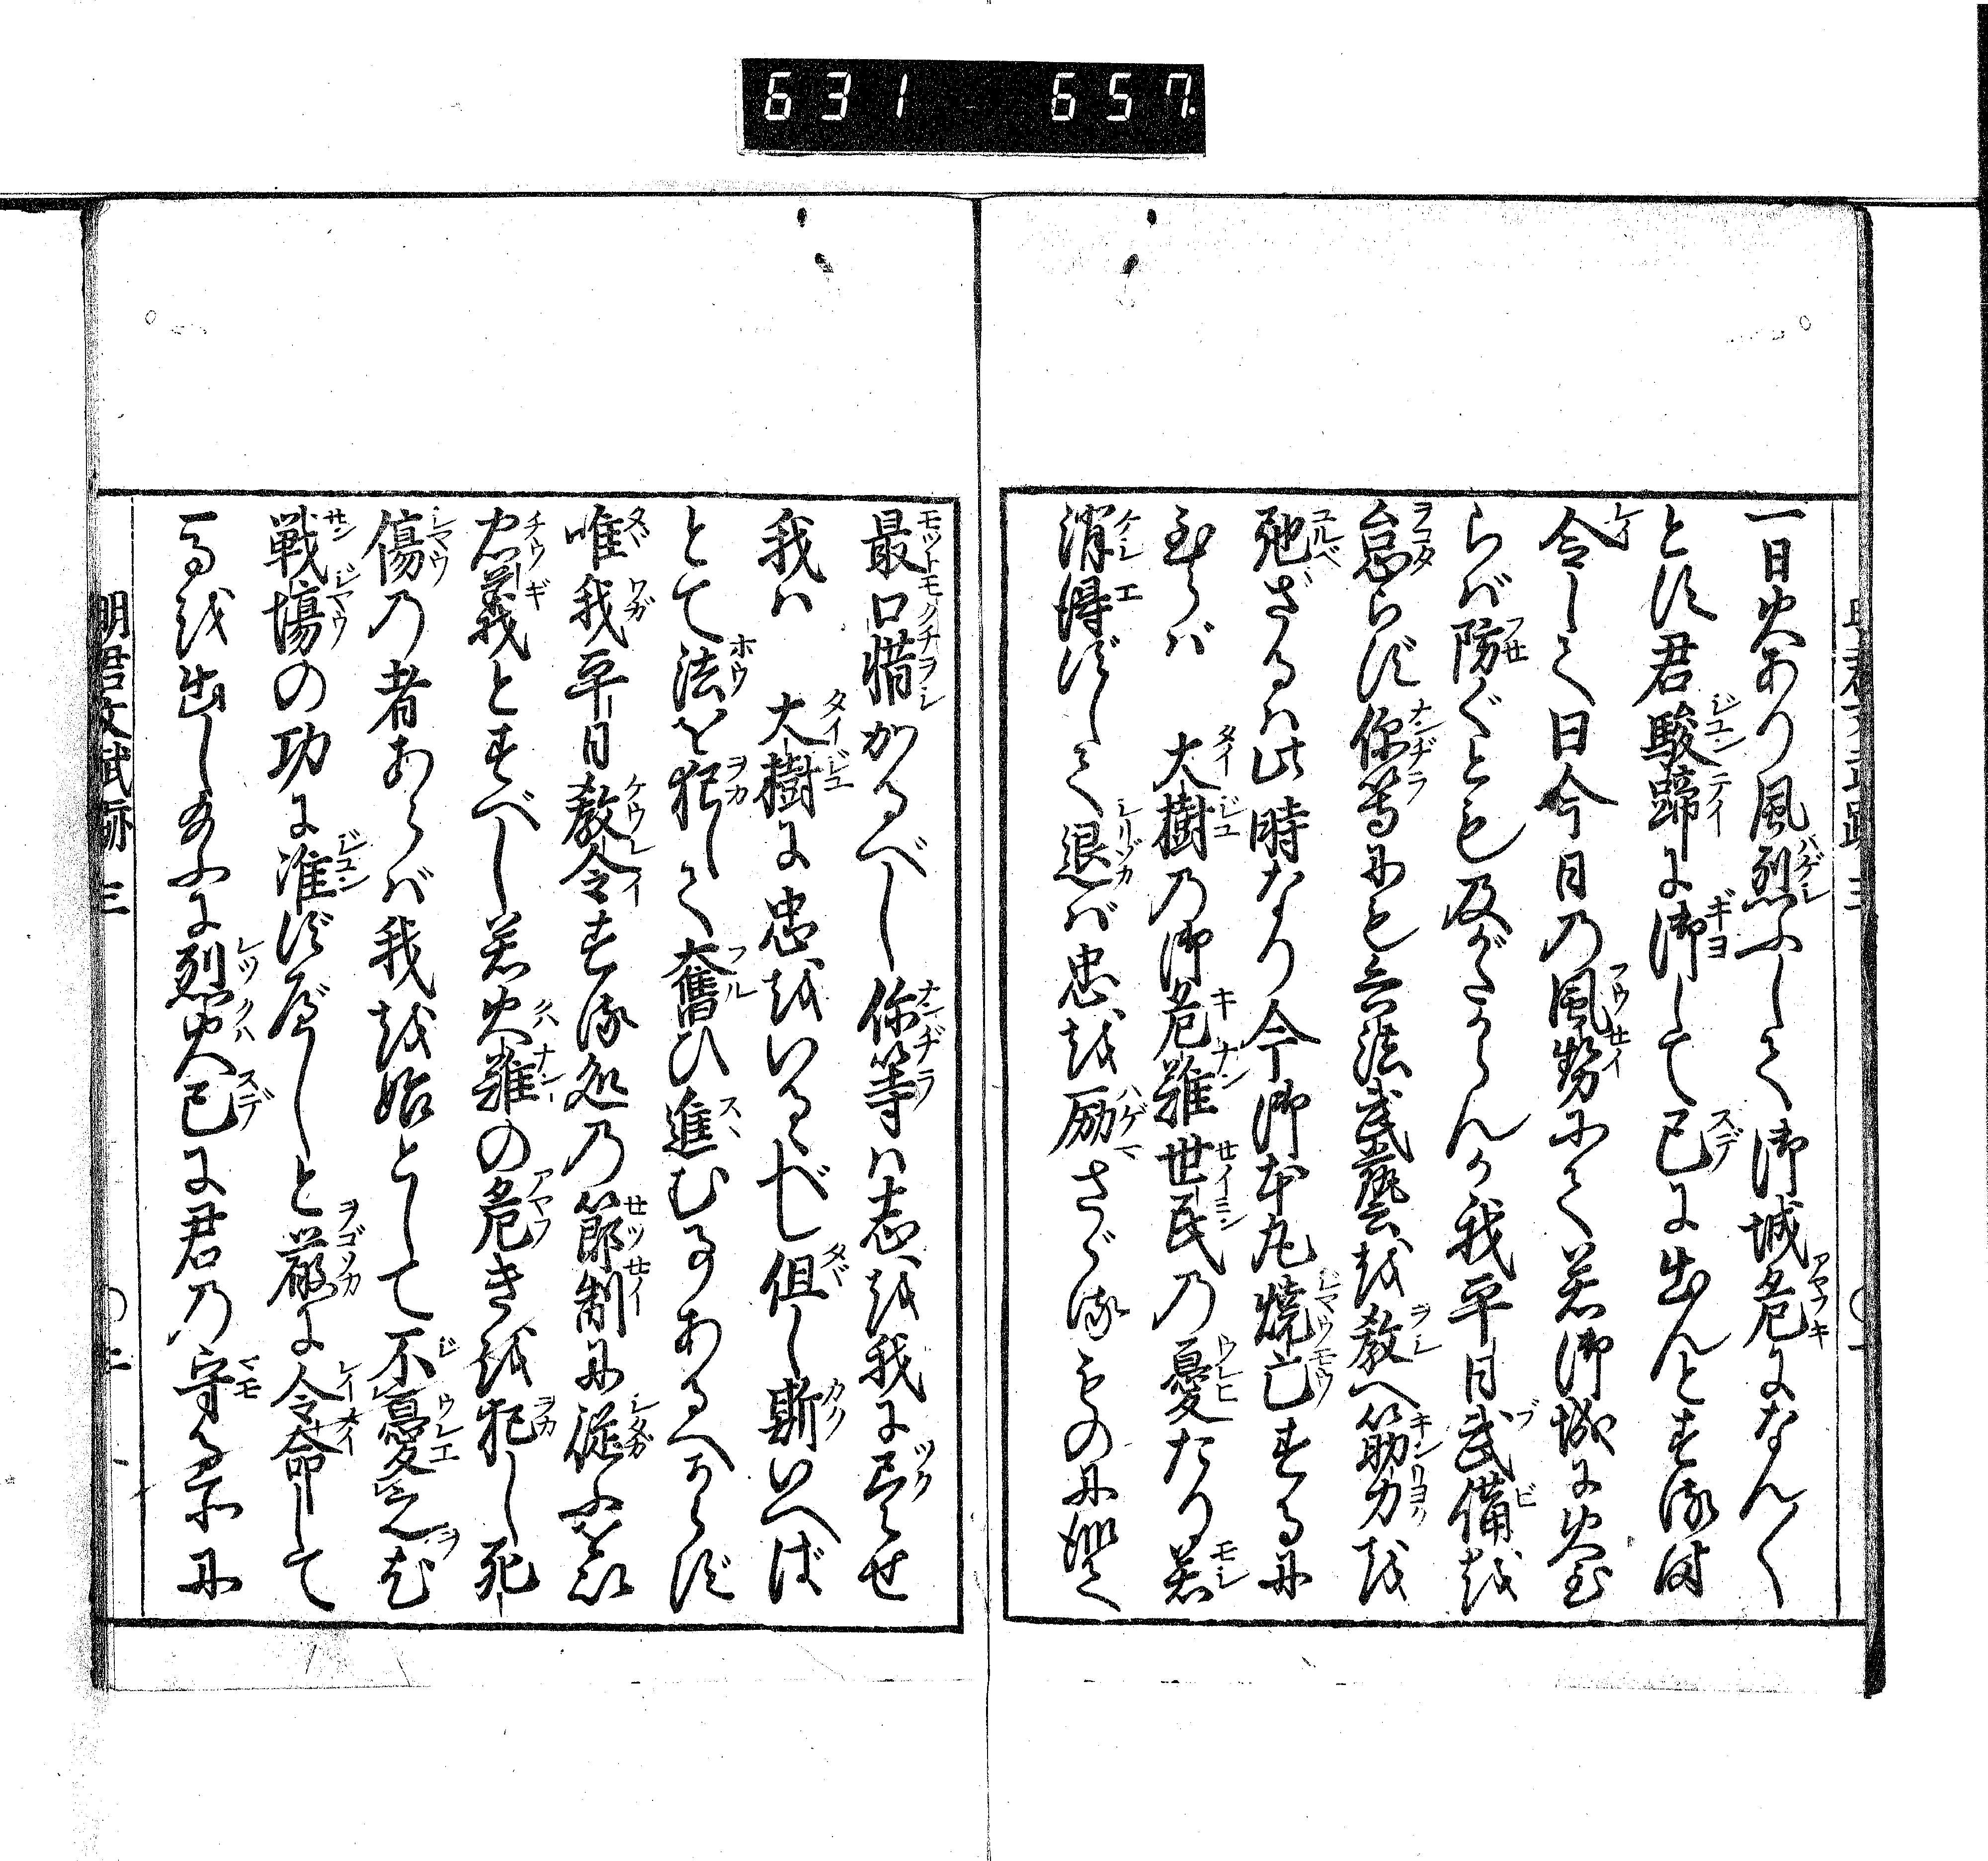 631 657
一日火あり風烈ふして御城危になん〱
とす君駿蹄に御して已に出んとする時
令して曰今日の風勢にて若御城に火至
らば防ぐとも及がたからんか我平日武備を
怠らず你等にも兵法武藝を教へ筋力を
弛ざるは此時なり今御本丸焼亡するに
至らば 大樹の御危難世民の憂たり若
消得ずして退ば忠を励さゞるものに似て
最口惜かるべし你等は志を我に尽せ
我は 大樹に忠をいるべし但し斯いへば
とて法を犯して奮ひ進むるあるべからず
唯我平日教令する処の節制に従ふを以
忠義とすべし若火難の危きを犯し死
傷の者あらば我を始として不憂之も
戦場の功に准ず可しと厳に令命して
馬を出し給ふに烈火已に君の守る処に
明君文武跡 三